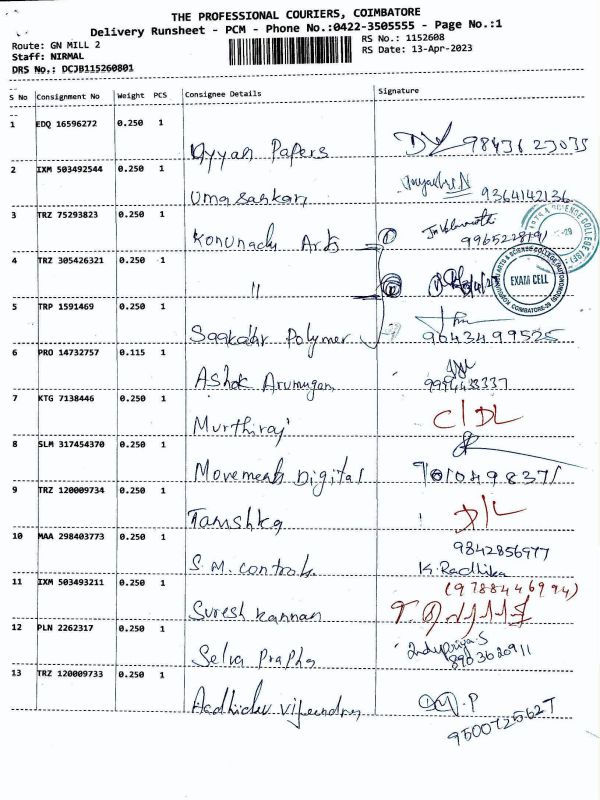 THE PROFESSIONAL COURIERS, COIMBATORE
Delivery Runsheet - PCM - Phone No.:0422-3505555 - Page No.:1
Route: GN MILL 2
Staff: NIRMAL
DRS No.: DCJB115260801
RS No.: 1152608
RS Date: 13-Apr-2023
S No Consignment No Weight PCS Consignee Details Signature
1 EDQ 16596272 0.250 1
Ayyan Papers
2 IXM 503492544 0.250 1
Umasankari 9364142136
3 TRZ 75293823 0.250 1
Konunadu Arts
4 TRZ 305426321 0.250 1
"
EXAM CELL
5 TRP 1591469 0.250 1
Polymer 9043499525
6 PRO 14732757 0.115 1
Ashok Arumugam
7 KTG 7138446 0.250 1
Murthiraj
8 SLM 317454370 0.250 1
Movements Digital
9 TRZ 120009734 0.250 1
D/L
10 MAA 298403773 0.250 1
9842856977
S.M. controls K. Radhika
11 IXM 503493211 0.250 1
(9788446994)
Suresh Kannan
12 PLN 2262317 0.250 1
Selva Prapha 8903620911
13 TRZ 120009733 0.250 1
9500725627